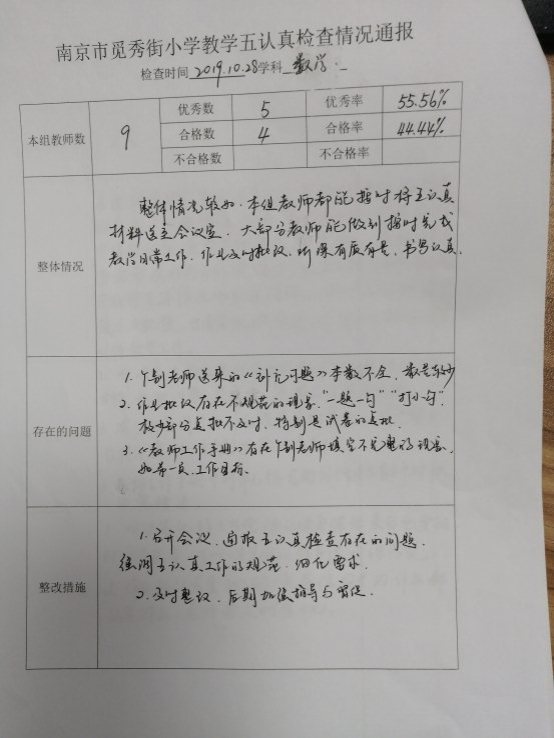 南京市觅秀街小学教学五认真检查情况通报
检查时间 2019.10.28 学科 数学
本组教师数 9 优秀数 5 优秀率 55.56%
合格数 4 合格率 44.44%
不合格数 不合格率
整体情况
整体情况较好,本组教师都能按时将五认真
材料送至会议室。大部分教师能做到按时完成
教学日常工作,作业及时批改,听课有质有量,书写认真。
存在的问题
1. 个别老师送来的《补充习题》本数不全,数量较少
2. 作业批改存在不规范的现象,“一题一勾”“打小勾”,
部分复批不及时,特别是试卷的复批。
3.《教师工作手册》存在个别老师填写不完整的现象,
如第一页,工作目标。
整改措施
1. 召开会议,通报五认真检查存在的问题,
强调五认真工作的规范、细化要求。
2. 及时整改,后期加强指导与督促。